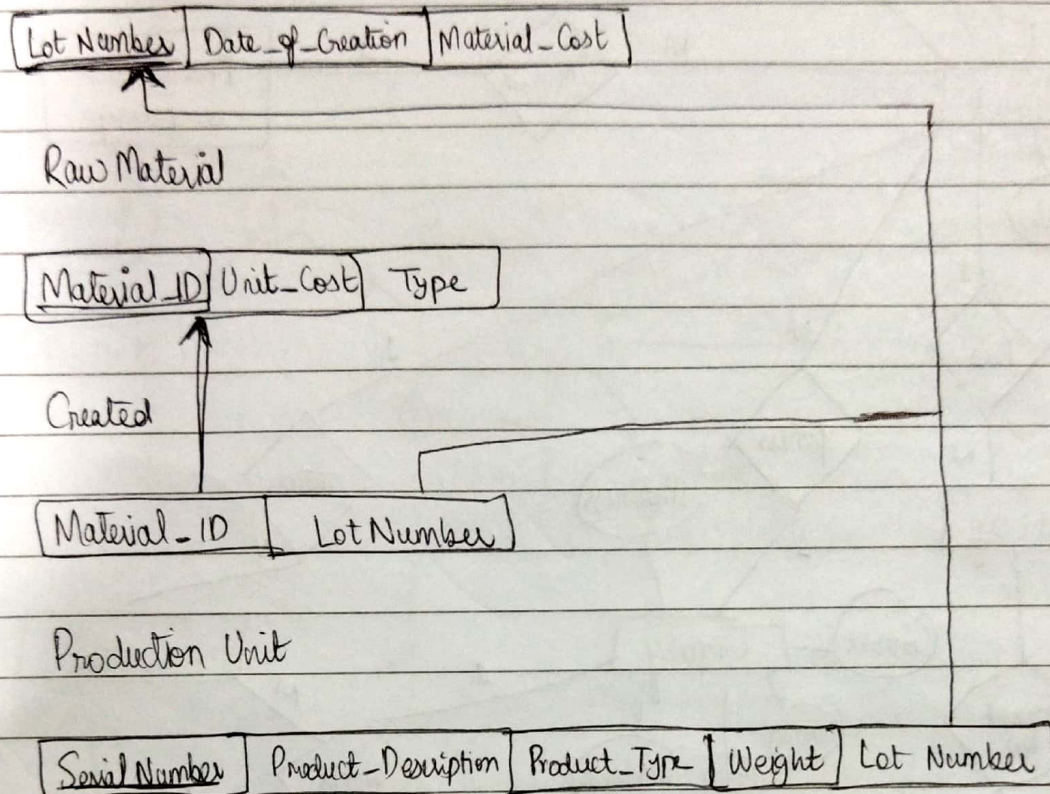 Lot Number Date_of_Creation Material_Cost
Raw Material
Material_ID Unit_Cost Type
Created
Material_ID Lot Number
Production Unit
Serial Number Product_Description Product_Type Weight Lot Number